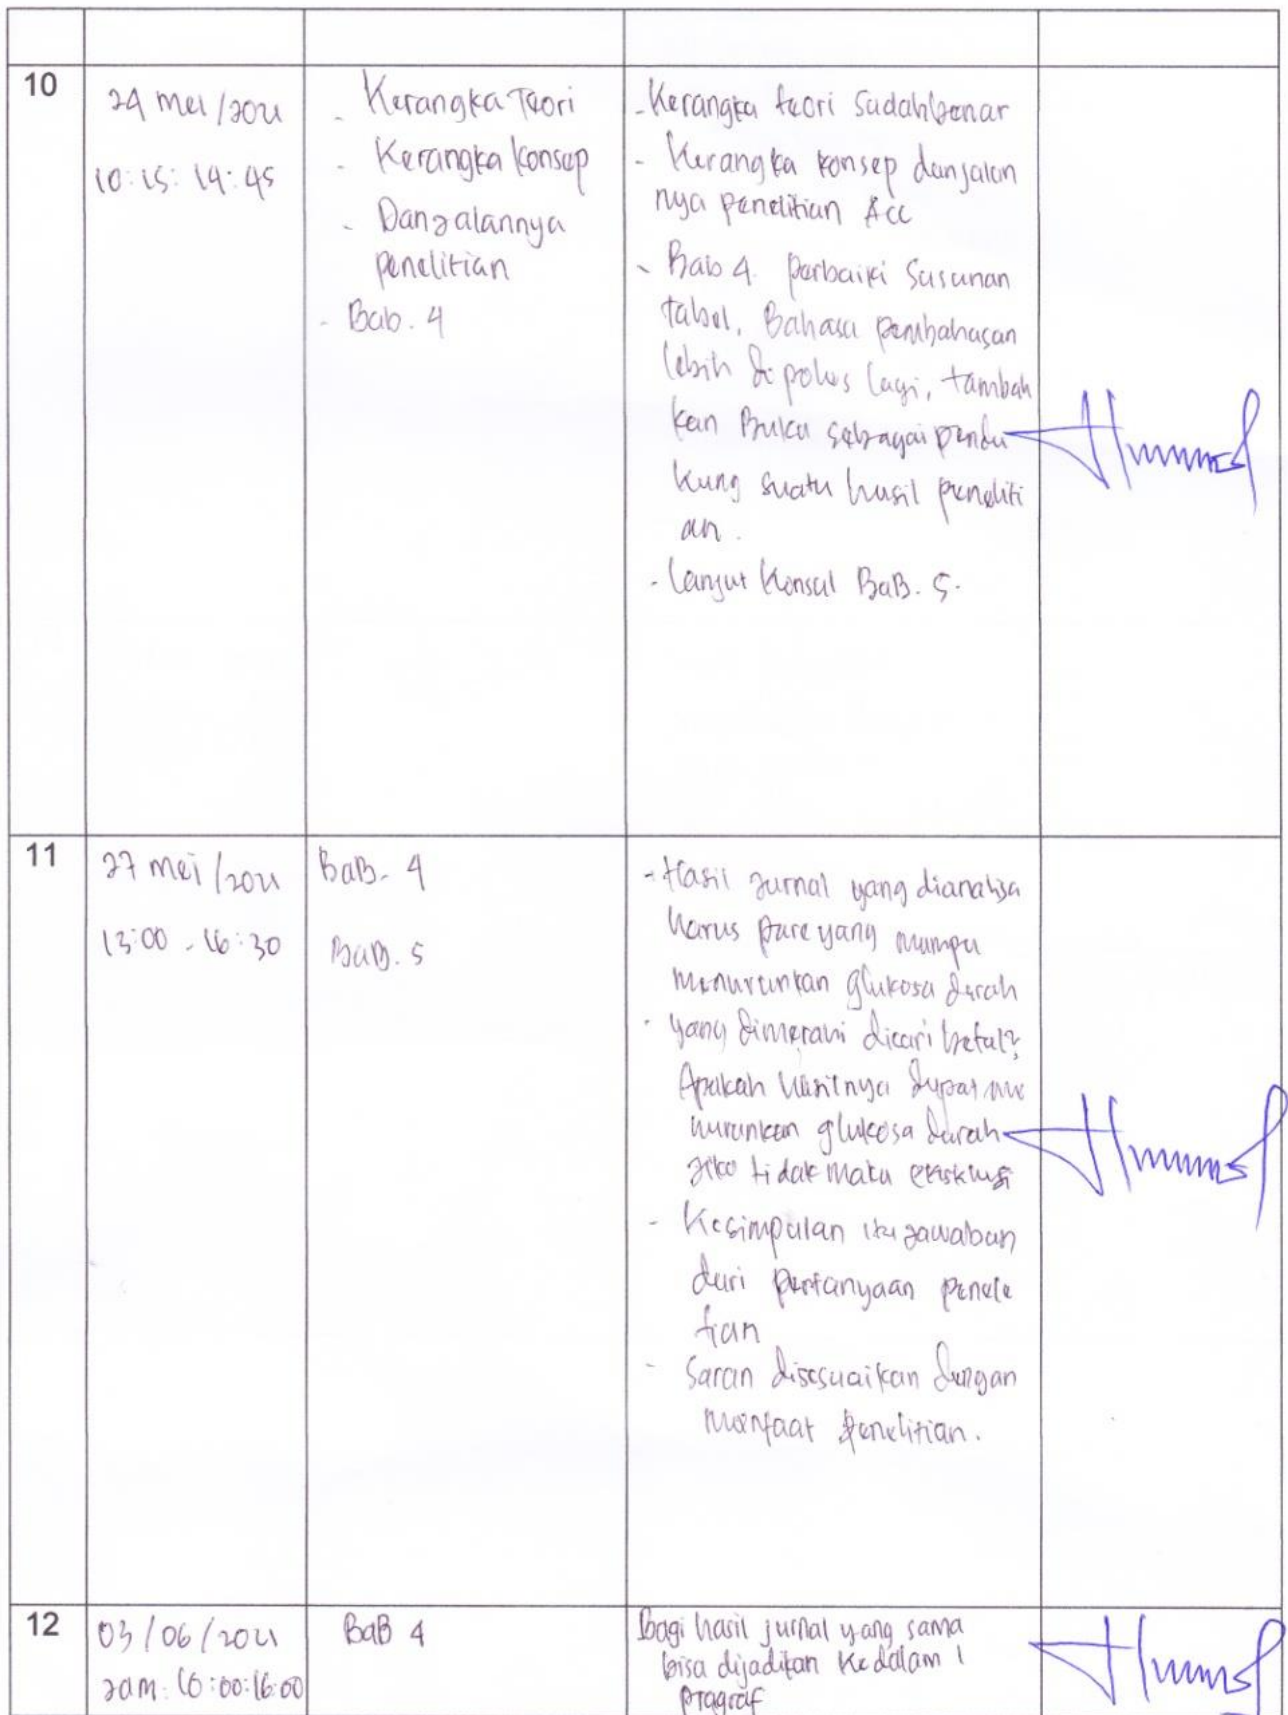 10
24 mei/2021
10:15: 14:45
- Kerangka Teori
- Kerangka konsep
- Dan jalannya
penelitian
- Bab. 4
- Kerangka teori sudah benar
- Kerangka konsep dan jalan
nya penelitian Acc
- Bab 4. perbaiki susunan
tabel, Bahasa pembahasan
lebih di pokus lagi, tambah
kan Buku sebagai pendu
kung suatu hasil peneliti
an.
- Lanjut Konsul BaB. 5.
11
27 mei/2021
13:00 - 16:30
BaB. 4
BaB. 5
- Hasil jurnal yang dianalisa
harus pare yang mampu
menurunkan glukosa darah
- yang dicari betul2
Apakah hasilnya dapat me
nurunkan glukosa darah
jika tidak maka
- Kesimpulan itu jawaban
dari pertanyaan penele
tian
- Saran disesuaikan dengan
manfaat penelitian.
12
03/06/2021
jam: 10:00:16:00
BaB 4
Bagi hasil jurnal yang sama
bisa dijadikan kedalam 1
pragraf